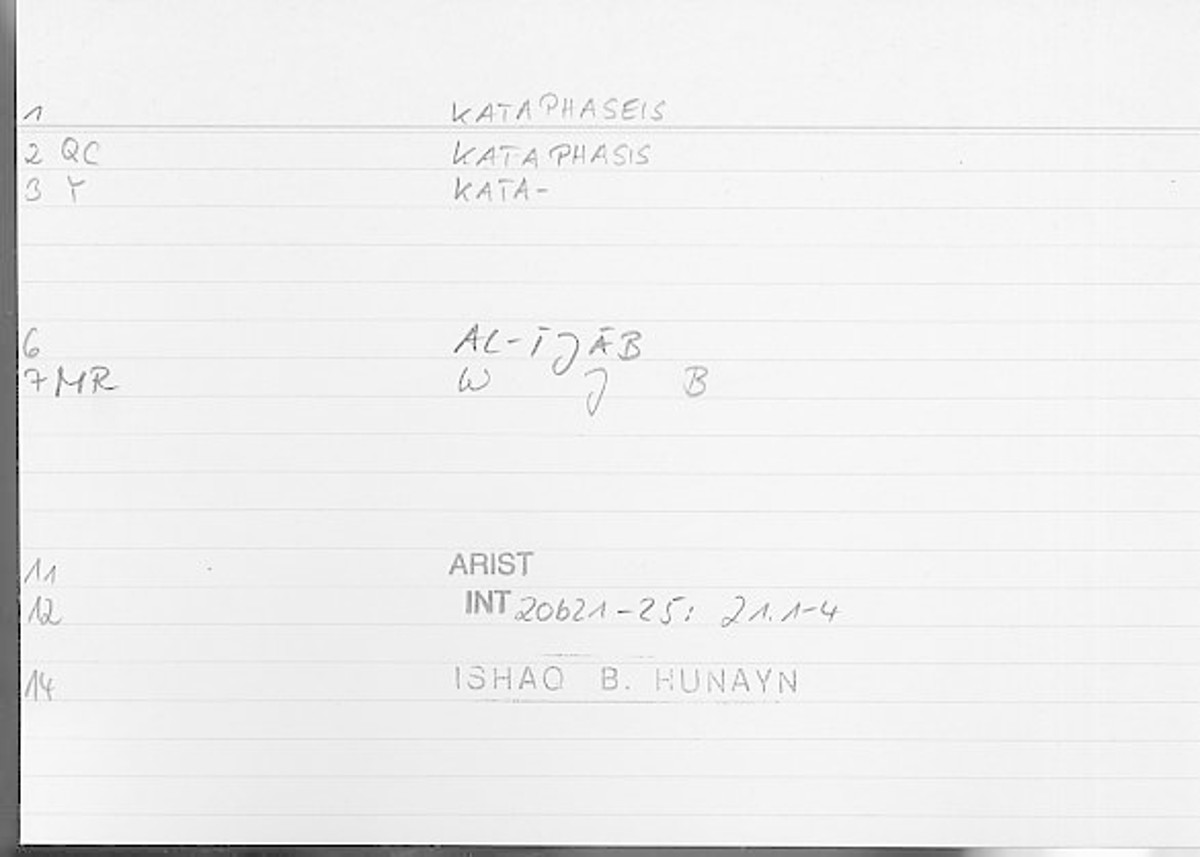 1 KATAPHASEIS
2 QC KATAPHASIS
3 Y KATA-
6 AL-ĪJĀB
7 MR W J B
11 ARIST
12 INT 20b21-25: 21.1-4
14 ISHAQ B. HUNAYN